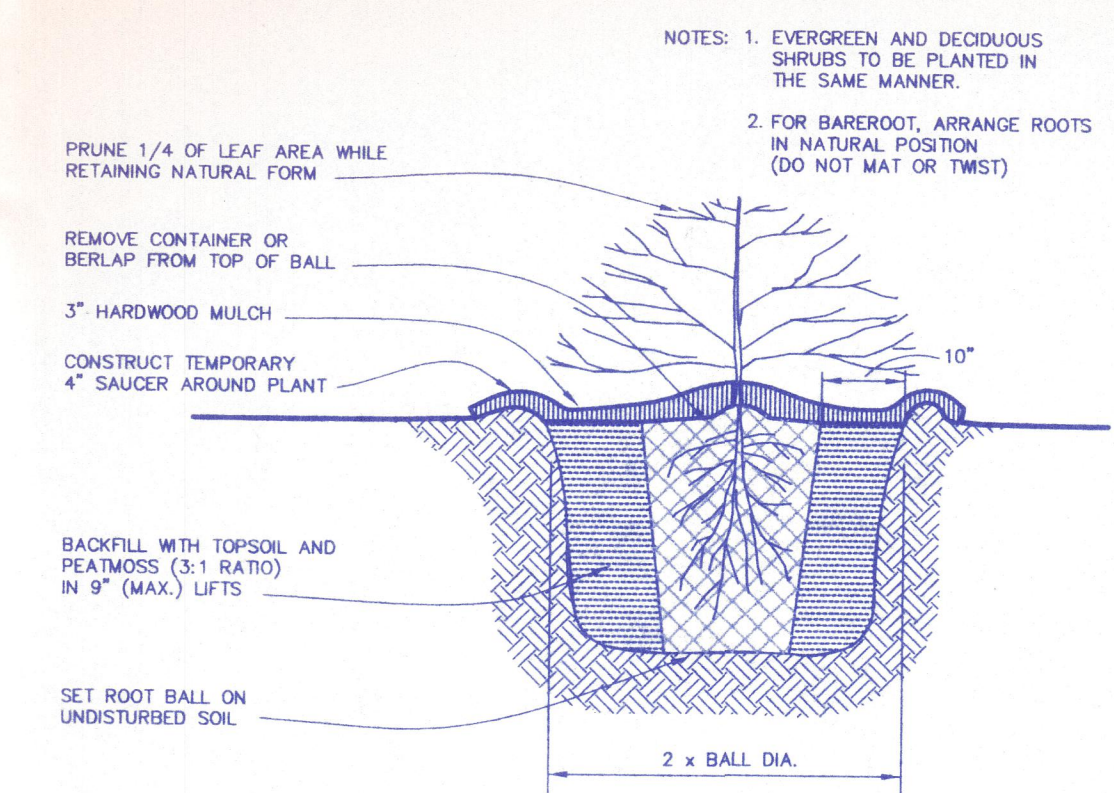 NOTES: 1. EVERGREEN AND DECIDUOUS
SHRUBS TO BE PLANTED IN
THE SAME MANNER.
2. FOR BAREROOT, ARRANGE ROOTS
IN NATURAL POSITION
(DO NOT MAT OR TWIST)
PRUNE 1/4 OF LEAF AREA WHILE
RETAINING NATURAL FORM
REMOVE CONTAINER OR
BERLAP FROM TOP OF BALL
3" HARDWOOD MULCH
CONSTRUCT TEMPORARY
4" SAUCER AROUND PLANT
10"
BACKFILL WITH TOPSOIL AND
PEATMOSS (3:1 RATIO)
IN 9" (MAX.) LIFTS
SET ROOT BALL ON
UNDISTURBED SOIL
2 x BALL DIA.